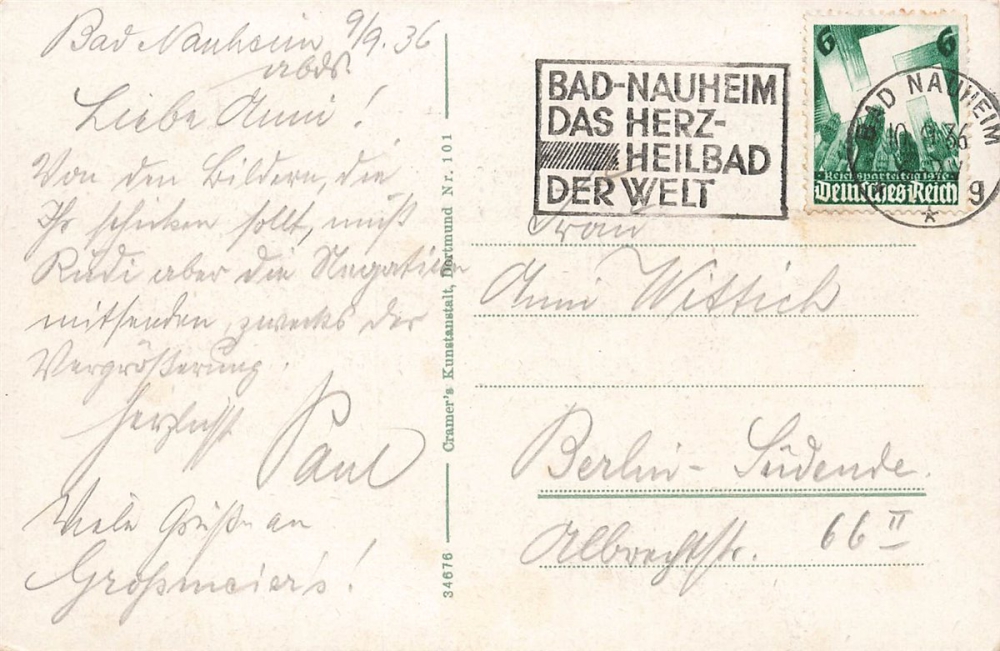 Bad Nauheim 9/9.36
abds.
Liebe Anni!
Von den Bildern, die
Ihr schicken sollt, muß
Rudi aber die Negative
mitsenden, zwecks der
Vergrößerung.
Herzlichst
Paul
Viele Grüße an
Großmeier's!
34676 Cramer's Kunstanstalt, Dortmund Nr. 101
BAD-NAUHEIM
DAS HERZ-
HEILBAD
DER WELT
6 6
Reichsparteitag 1936
Deutsches Reich
BAD NAUHEIM
10.9.36
9
Frau
Anni Wittich
Berlin-Südende.
Albrechtstr. 66 II